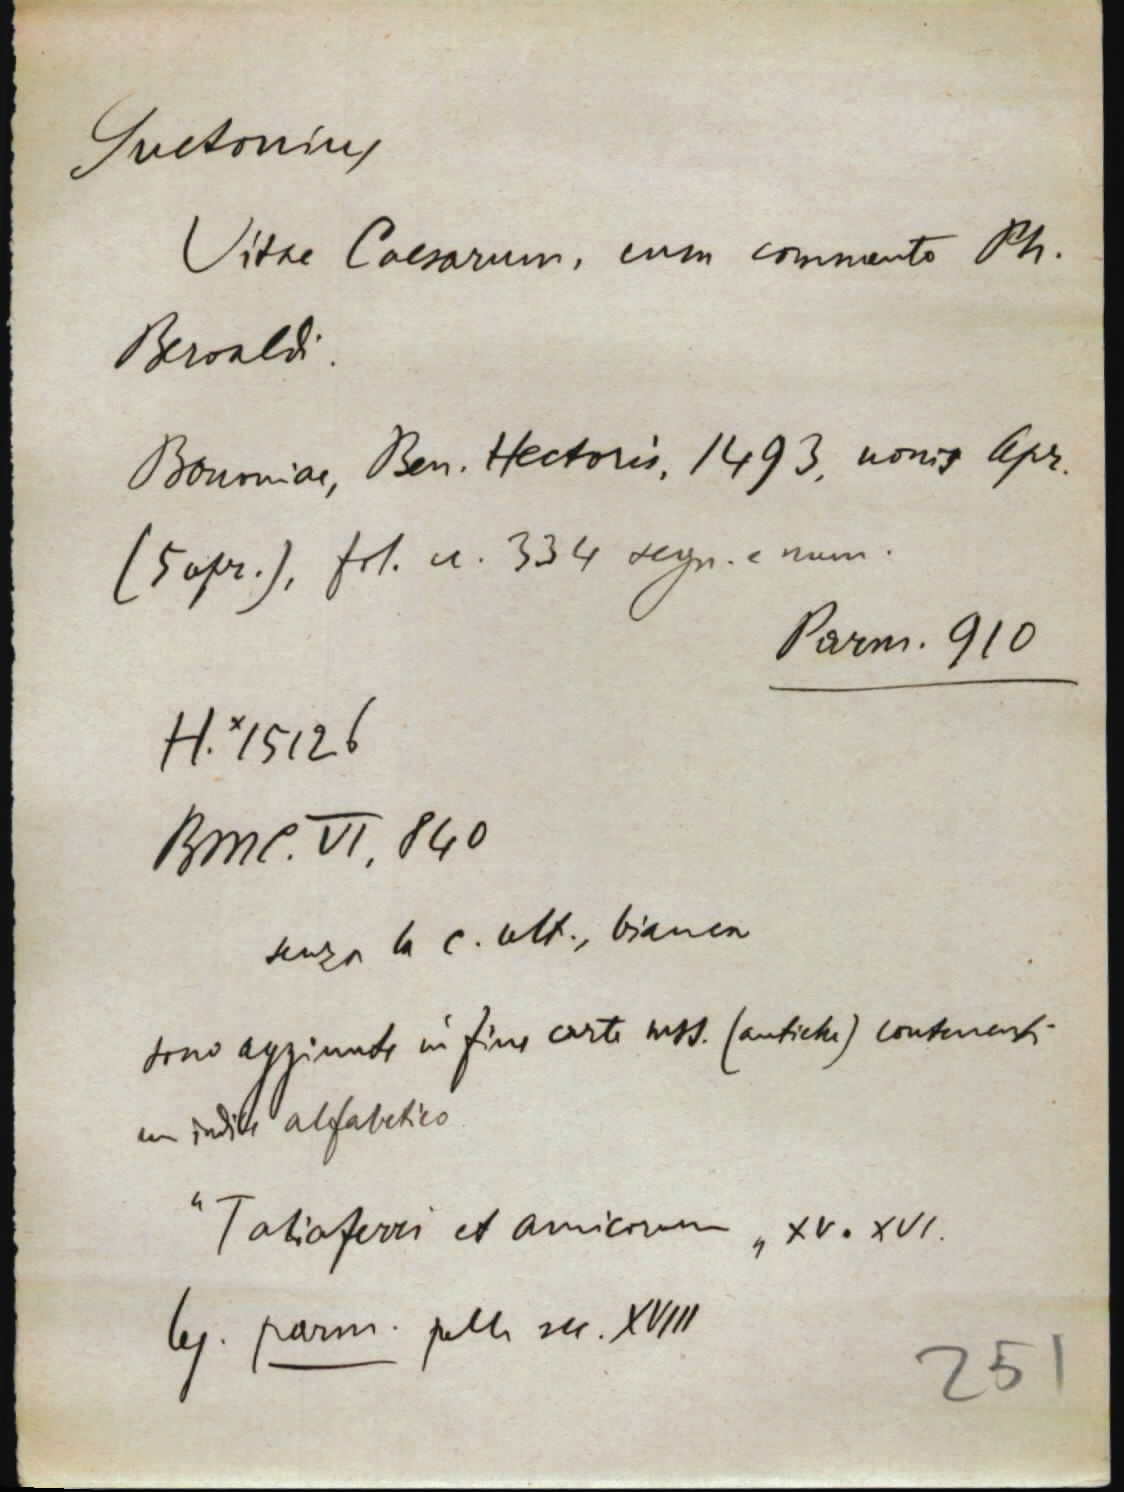 Suetonius
Vitae Caesarum, cum commento Ph.
Beroaldi.
Bononiae, Ben. Hectoris, 1493, nonis Apr.
(5 apr.), fol. cc. 334 segn. e num.
Parm. 910
H.*15126
BMC. VI, 840
senza la c. ult., bianca
sono aggiunte in fine carte mss. (antiche) contenenti
un indice alfabetico
"Taliaferri et amicorum„ XV. XVI.
leg. parm. pelle sec. XVIII
251